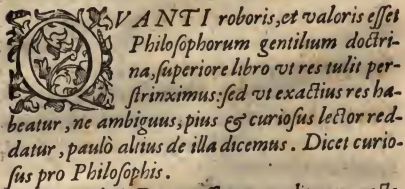 QVANTI roboris, et valoris eſſet
Philoſophorum gentilium doctri-
na, ſuperiore libro vt res tulit per-
ſtrinximus: ſed vt exactius res ha-
beatur, ne ambiguus, pius & curioſus lector red-
datur, paulò altius de illa dicemus. Dicet curio-
ſus pro Philoſophis.